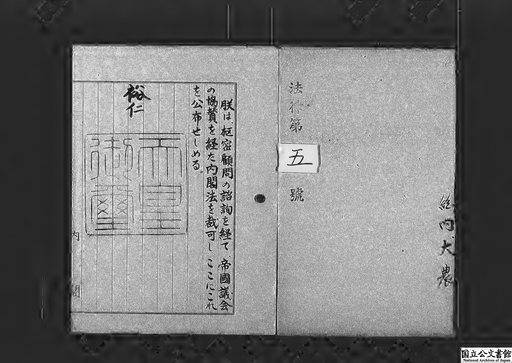 法律第
五
號
総内大農
朕は枢密顧問の諮詢を経て、帝國議会
の協賛を経た内閣法を裁可し、ここにこれ
を公布せしめる。
裕仁
天皇
御璽
内閣
国立公文書館
National Archives of Japan